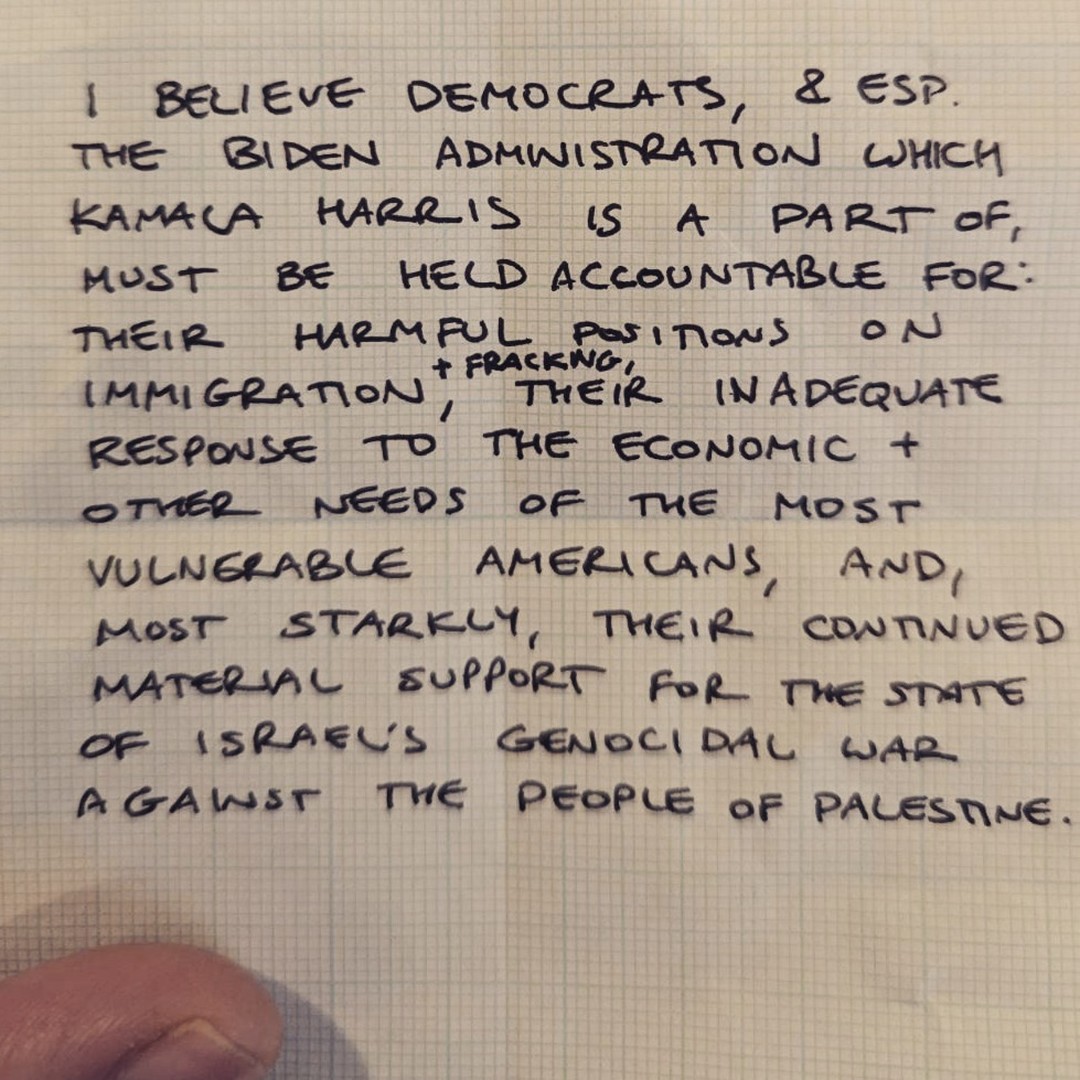 I BELIEVE DEMOCRATS, & ESP.
THE BIDEN ADMINISTRATION WHICH
KAMALA HARRIS IS A PART OF,
MUST BE HELD ACCOUNTABLE FOR:
THEIR HARMFUL POSITIONS ON
+ FRACKING,
IMMIGRATION, THEIR INADEQUATE
RESPONSE TO THE ECONOMIC +
OTHER NEEDS OF THE MOST
VULNERABLE AMERICANS, AND,
MOST STARKLY, THEIR CONTINUED
MATERIAL SUPPORT FOR THE STATE
OF ISRAEL'S GENOCIDAL WAR
AGAINST THE PEOPLE OF PALESTINE.